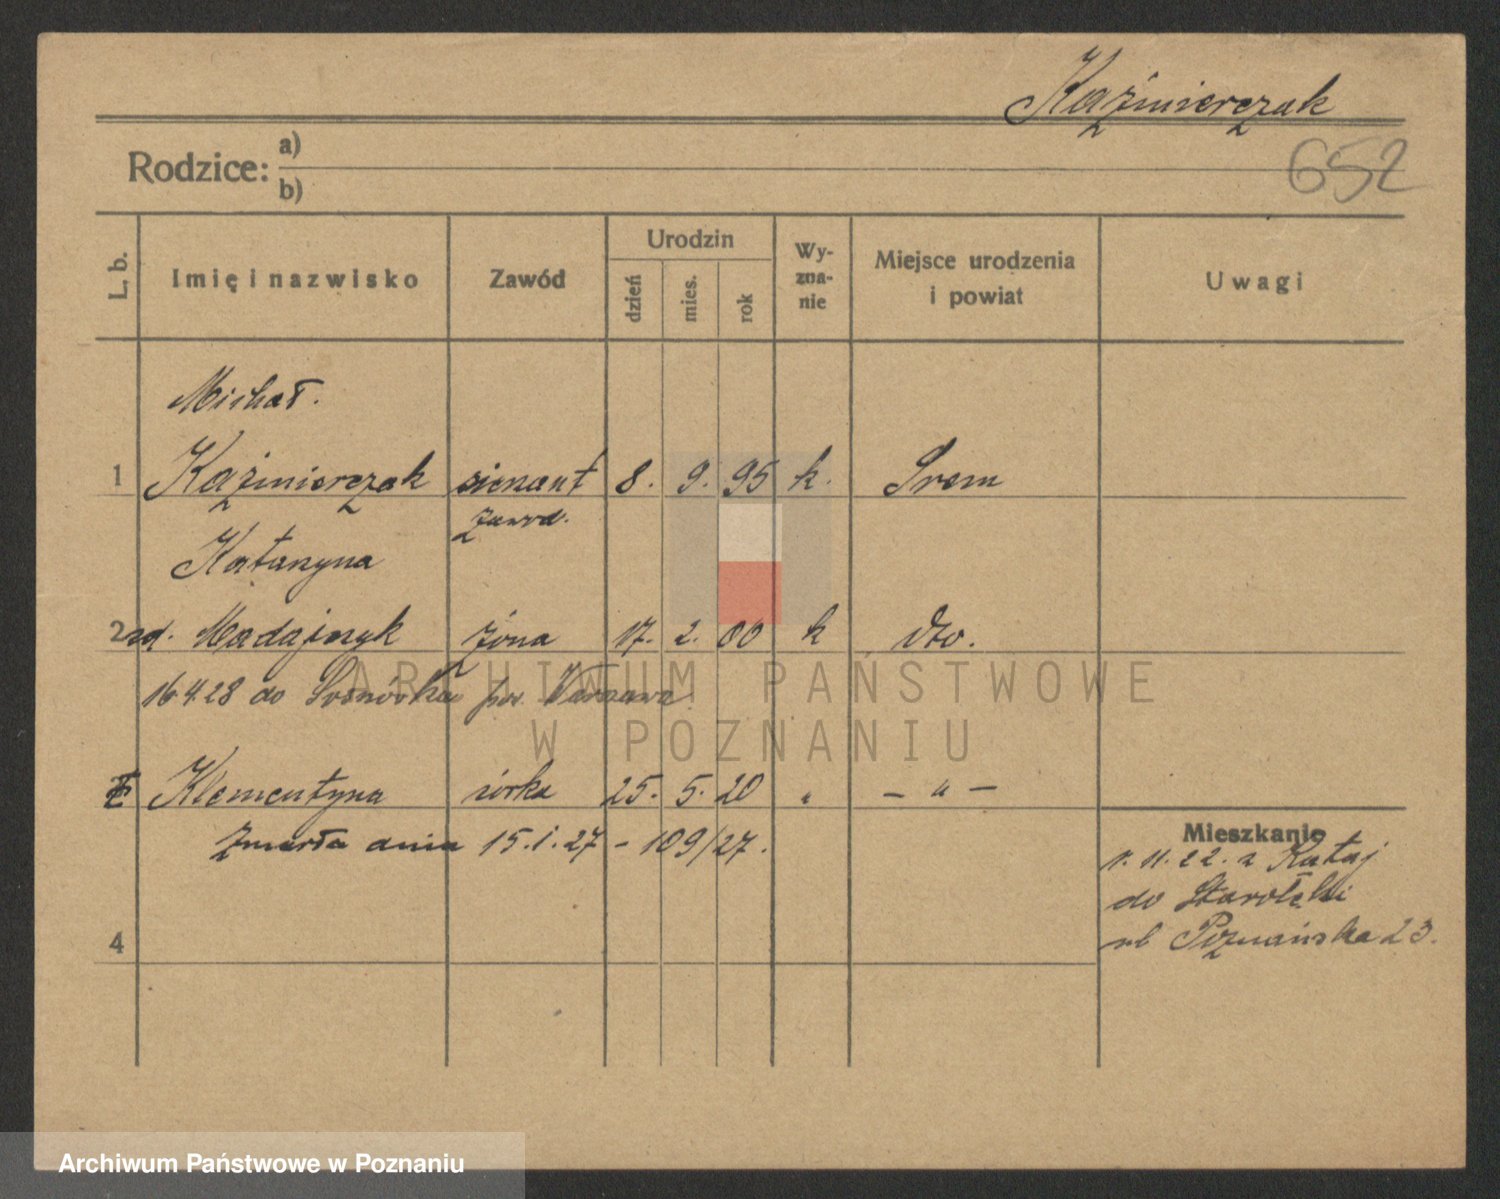 Kaźmierczak
652
Rodzice: a)
b)
L. b.
Imię i nazwisko
Zawód
Urodzin
dzień
mies.
rok
Wy-
zna-
nie
Miejsce urodzenia
i powiat
Uwagi
Michał.
1 Kaźmierczak sierżant 8. 9. 95 k. Śrem
zawod.
Katarzyna
2 zd. Madajczyk żona 17. 2. 00 k dto.
16.4.28 do Sosnówka pow. Warszawa
Klementyna córka 25. 5. 20 " — " —
Zmarła dnia 15.1.27 - 109/27.
4
Mieszkanie
1. 11. 22. z Rataj
do Starołęki
ul Poznańska 23.
ARCHIWUM PAŃSTWOWE
W POZNANIU
Archiwum Państwowe w Poznaniu